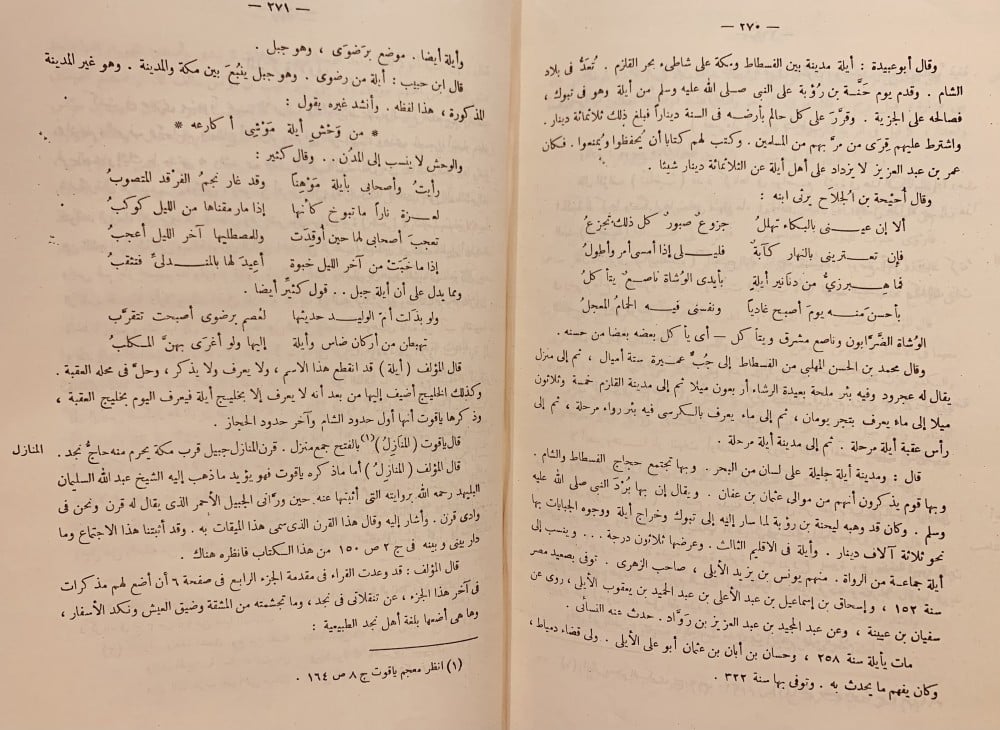 — ٢٧٠ —
وقال أبو عبيدة : أيلة مدينة بين الفسطاط ومكة على شاطىء بحر القلزم . تُعَدُّ فى بلاد
الشام . وقدم يوحَنَّة بن رُؤبة على النبى صلى الله عليه وسلم من أيلة وهو فى تبوك ،
فصالحه على الجزية . وقرَّر على كل حالم بأرضه فى السنة ديناراً فبلغ ذلك ثلاثمائة دينار .
واشترط عليهم قِرَى من مرَّ بهم من المسلمين . وكتب لهم كتابا أن يُحفظوا ويُمنعوا . فكان
عمر بن عبد العزيز لا يزداد على أهل أيلة عن الثلاثمائة دينار شيئا .
وقال أحَيْحة بن الجُلَاح يرثى ابنه :
ألا إن عينى بالبكاء تهلل جزوعٌ صبورٌ كل ذلك تجزعُ
فإن تعترينى بالنهار كآبةٌ فليلى إذا أمسى أمر وأطولُ
فما هِبرزىٌّ من دنانير أيلةٍ بأيدى الوُشاة ناصعٌ يتأكلُ
بأحسن منه يومَ أصبح غادياً ونفسنى فيه الحمامُ المعجلُ
الوُشاة الضَّرَّابون وناصع مشرق ويتأكل — أى يأكل بعضه بعضا من حسنه .
وقال محمد بن الحسن المهلبى من الفسطاط إلى جُبِّ عميرة ستة أميال ، ثم إلى منزل
يقال له عجرود وفيه بئر ملحة بعيدة الرشاء أربعون ميلا ثم إلى مدينة القلزم خمسة وثلاثون
ميلا إلى ماء يعرف بتجر يومان ، ثم إلى ماء يعرف بالكرسى فيه بئر رواء مرحلة ، ثم إلى
رأس عقبة أيلة مرحلة . ثم إلى مدينة أيلة مرحلة .
قال : ومدينة أيلة جليلة على لسان من البحر . وبها تجتمع حجاج الفسطاط والشام .
وبها قوم يذكرون أنهم من موالى عثمان بن عفان . ويقال إن بها بُرْدَ النبى صلى الله عليه
وسلم . وكان قد وهبه ليحنة بن رؤبة لما سار إليه إلى تبوك وخراج أيلة ووجوه الجبايات بها
نحو ثلاثة آلاف دينار . وأيلة فى الاقليم الثالث . وعرضها ثلاثون درجة . . . وينسب إلى
أيلة جماعة من الرواة . منهم يونس بن يزيد الأيلى ، صاحب الزهرى . توفى بصعيد مصر
سنة ١٥٢ ، وإسحاق بن إسماعيل بن عبد الأعلى بن عبد الحميد بن يعقوب الأيلى ، روى عن
سفيان بن عيينة ، وعن عبد المجيد بن عبد العزيز بن رَوَّاد . حدث عنه النسائى .
مات بأيلة سنة ٢٥٨ ، وحسان بن أبان بن عثمان أبو على الأيلى . ولى قضاء دمياط ،
وكان يفهم ما يحدث به . وتوفى بها سنة ٣٢٢ .
— ٢٧١ —
وأيلة أيضا . موضع برَضوَى ، وهو جبل .
قال ابن حبيب : أيلة من رضوى . وهو جبل ينْبُعَ بين مكة والمدينة . وهو غير المدينة
المذكورة ، هذا لفظه . وأنشد غيره يقول :
* من وَحْشِ أيلة مَوْشِى أكارعه *
والوحش لا ينسب إلى المدُن . . وقال كثير :
رأيتُ وأصحابى بأيلة مَوْهِناً وقد غار نجمُ الفرْقد المتصوبُ
لعزة ناراً ما تبوخ كأنها إذا مارمقناها من الليل كوكبُ
تعجبَ أصحابى لها حين أوقِدَت وللمصطليها آخرَ الليل أعجبُ
إذا ما خَبَتْ من آخر الليل خبوة أعِيدَ لها بالمندلىِّ فتثقبُ
ومما يدل على أن أيلة جبل . . قول كثيّر أيضا .
ولو بذلت أمّ الوليد حديثها لعُصم برضوى أصبحت تتقرَّب
تهبطن من أركان ضاس وأيلة إليها ولو أغرَى بهنَّ المكلبُ
قال المؤلف ( أيلة ) قد انقطع هذا الاسم ، ولا يعرف ولا يذكر ، وحلَّ فى محله العقبة .
وكذلك الخليج أضيف إليها من بعد أنه لا يعرف إلا بخليج أيلة فيعرف اليوم بخليج العقبة ،
وذكرها ياقوت أنها أول حدود الشام وآخر حدود الحجاز .
المنازل
قال ياقوت ( المَنازِلُ )(١) بالفتح جمع منزل . قرن المنازل جبيل قرب مكة يحرم منه حاجُّ نجد .
قال المؤلف ( المنازِلُ ) أما ما ذكره ياقوت فهو يؤيد ما ذهب إليه الشيخ عبد الله السليمان
البليهد رحمه الله بروايته التى أثبتها عنه حين ورَّانى الجبيل الأحمر الذى يقال له قرن ونحن فى
وادى قرن . وأشار إليه وقال هذا القرن الذى سمى هذا الميقات به . وقد أثبتنا هذا الاجتماع وما
دار بينى وبينه فى ج ٢ ص ١٥٠ من هذا الكتاب فانظره هناك .
قال المؤلف : قد وعدت القراء فى مقدمة الجزء الرابع فى صفحة ٦ أن أضع لهم مذكرات
فى آخر هذا الجزء ، عن تنقلاتى فى نجد ، وما تجشمته من المشقة وضيق العيش ونكد الأسفار ،
وها هى أضعها بلغة أهل نجد الطبيعية :
(١) انظر معجم ياقوت ج ٨ ص ١٦٤ .